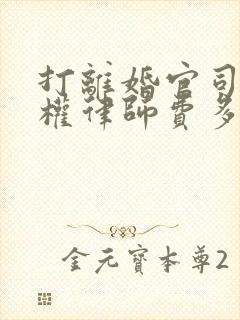 打離婚官司
權律師費多
金元寶本尊2